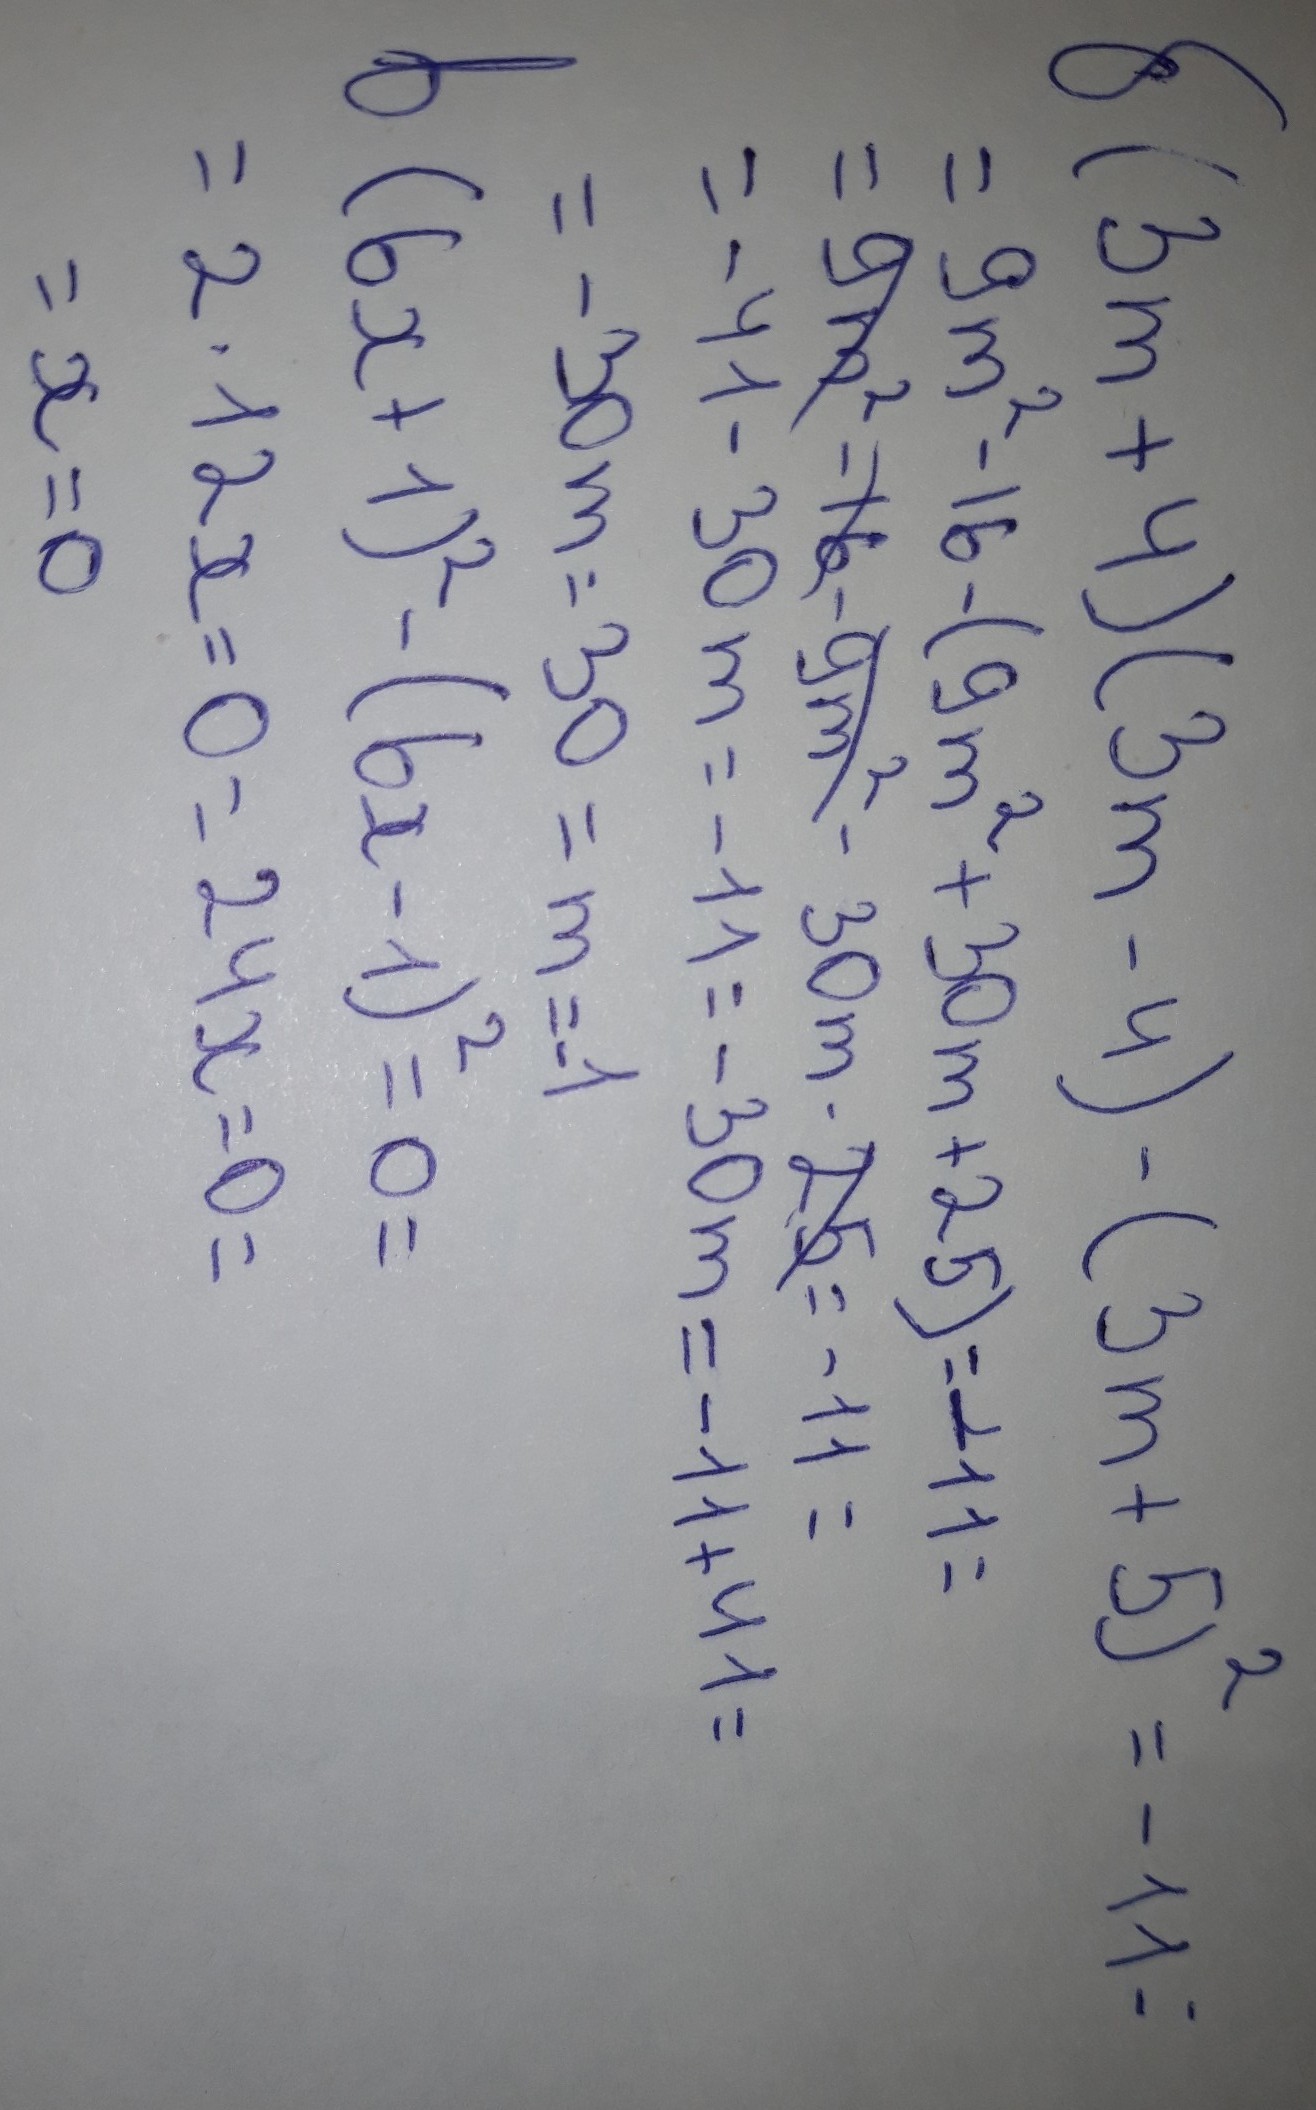 б (3m+4)(3m-4)-(3m+5)² = -11=
= 9m²-16-(9m²+30m+25)=-11=
= 9m²-16-9m²-30m-25=-11=
= -41-30m=-11=-30m=-11+41=
= -30m=30=m=-1
б (6x+1)²-(6x-1)²=0=
= 2·12x=0=24x=0=
= x=0